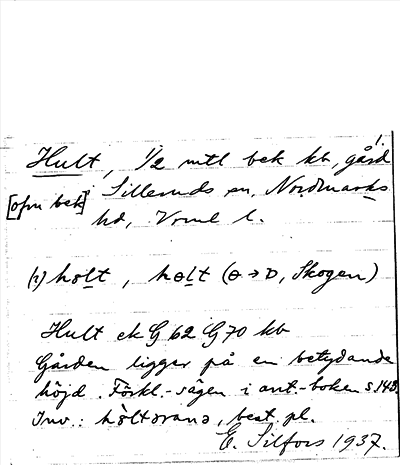 Hult, 1/2 mtl bek kb, gård 1.
[ofvn bek] Silleruds sn, Nordmarks
hd, Vrml l.
(1) holt, hɵlt (ɵ→ɒ, Skogen)
Hult ek G 62 G 70 kb
Gården ligger på en betydande
höjd. Förkl.-sägen i ant.-boken s 143.
Inv.: hòltərana, best. pl.
E. Silfors 1937.